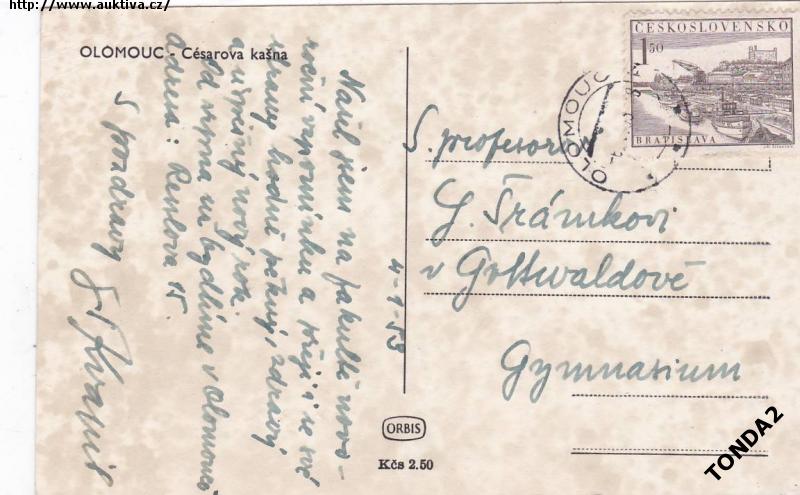 http://www.auktiva.cz/
OLOMOUC - Césarova kašna
Našel jsem na fakultě novo-
roční vzpomínku a přeji i se své
strany hodně pěkný, zdravý
a úspěšný nový rok.
Od srpna m. bydlíme v Olomouci
Adresa: Renslova 15.
S pozdravy
4-1-53
ČESKOSLOVENSKO
1 50
BRATISLAVA
OLOMOUC
S. profesorovi
J. Šrámkovi
v Gottwaldově
Gymnasium
ORBIS
Kčs 2.50
TONDA2